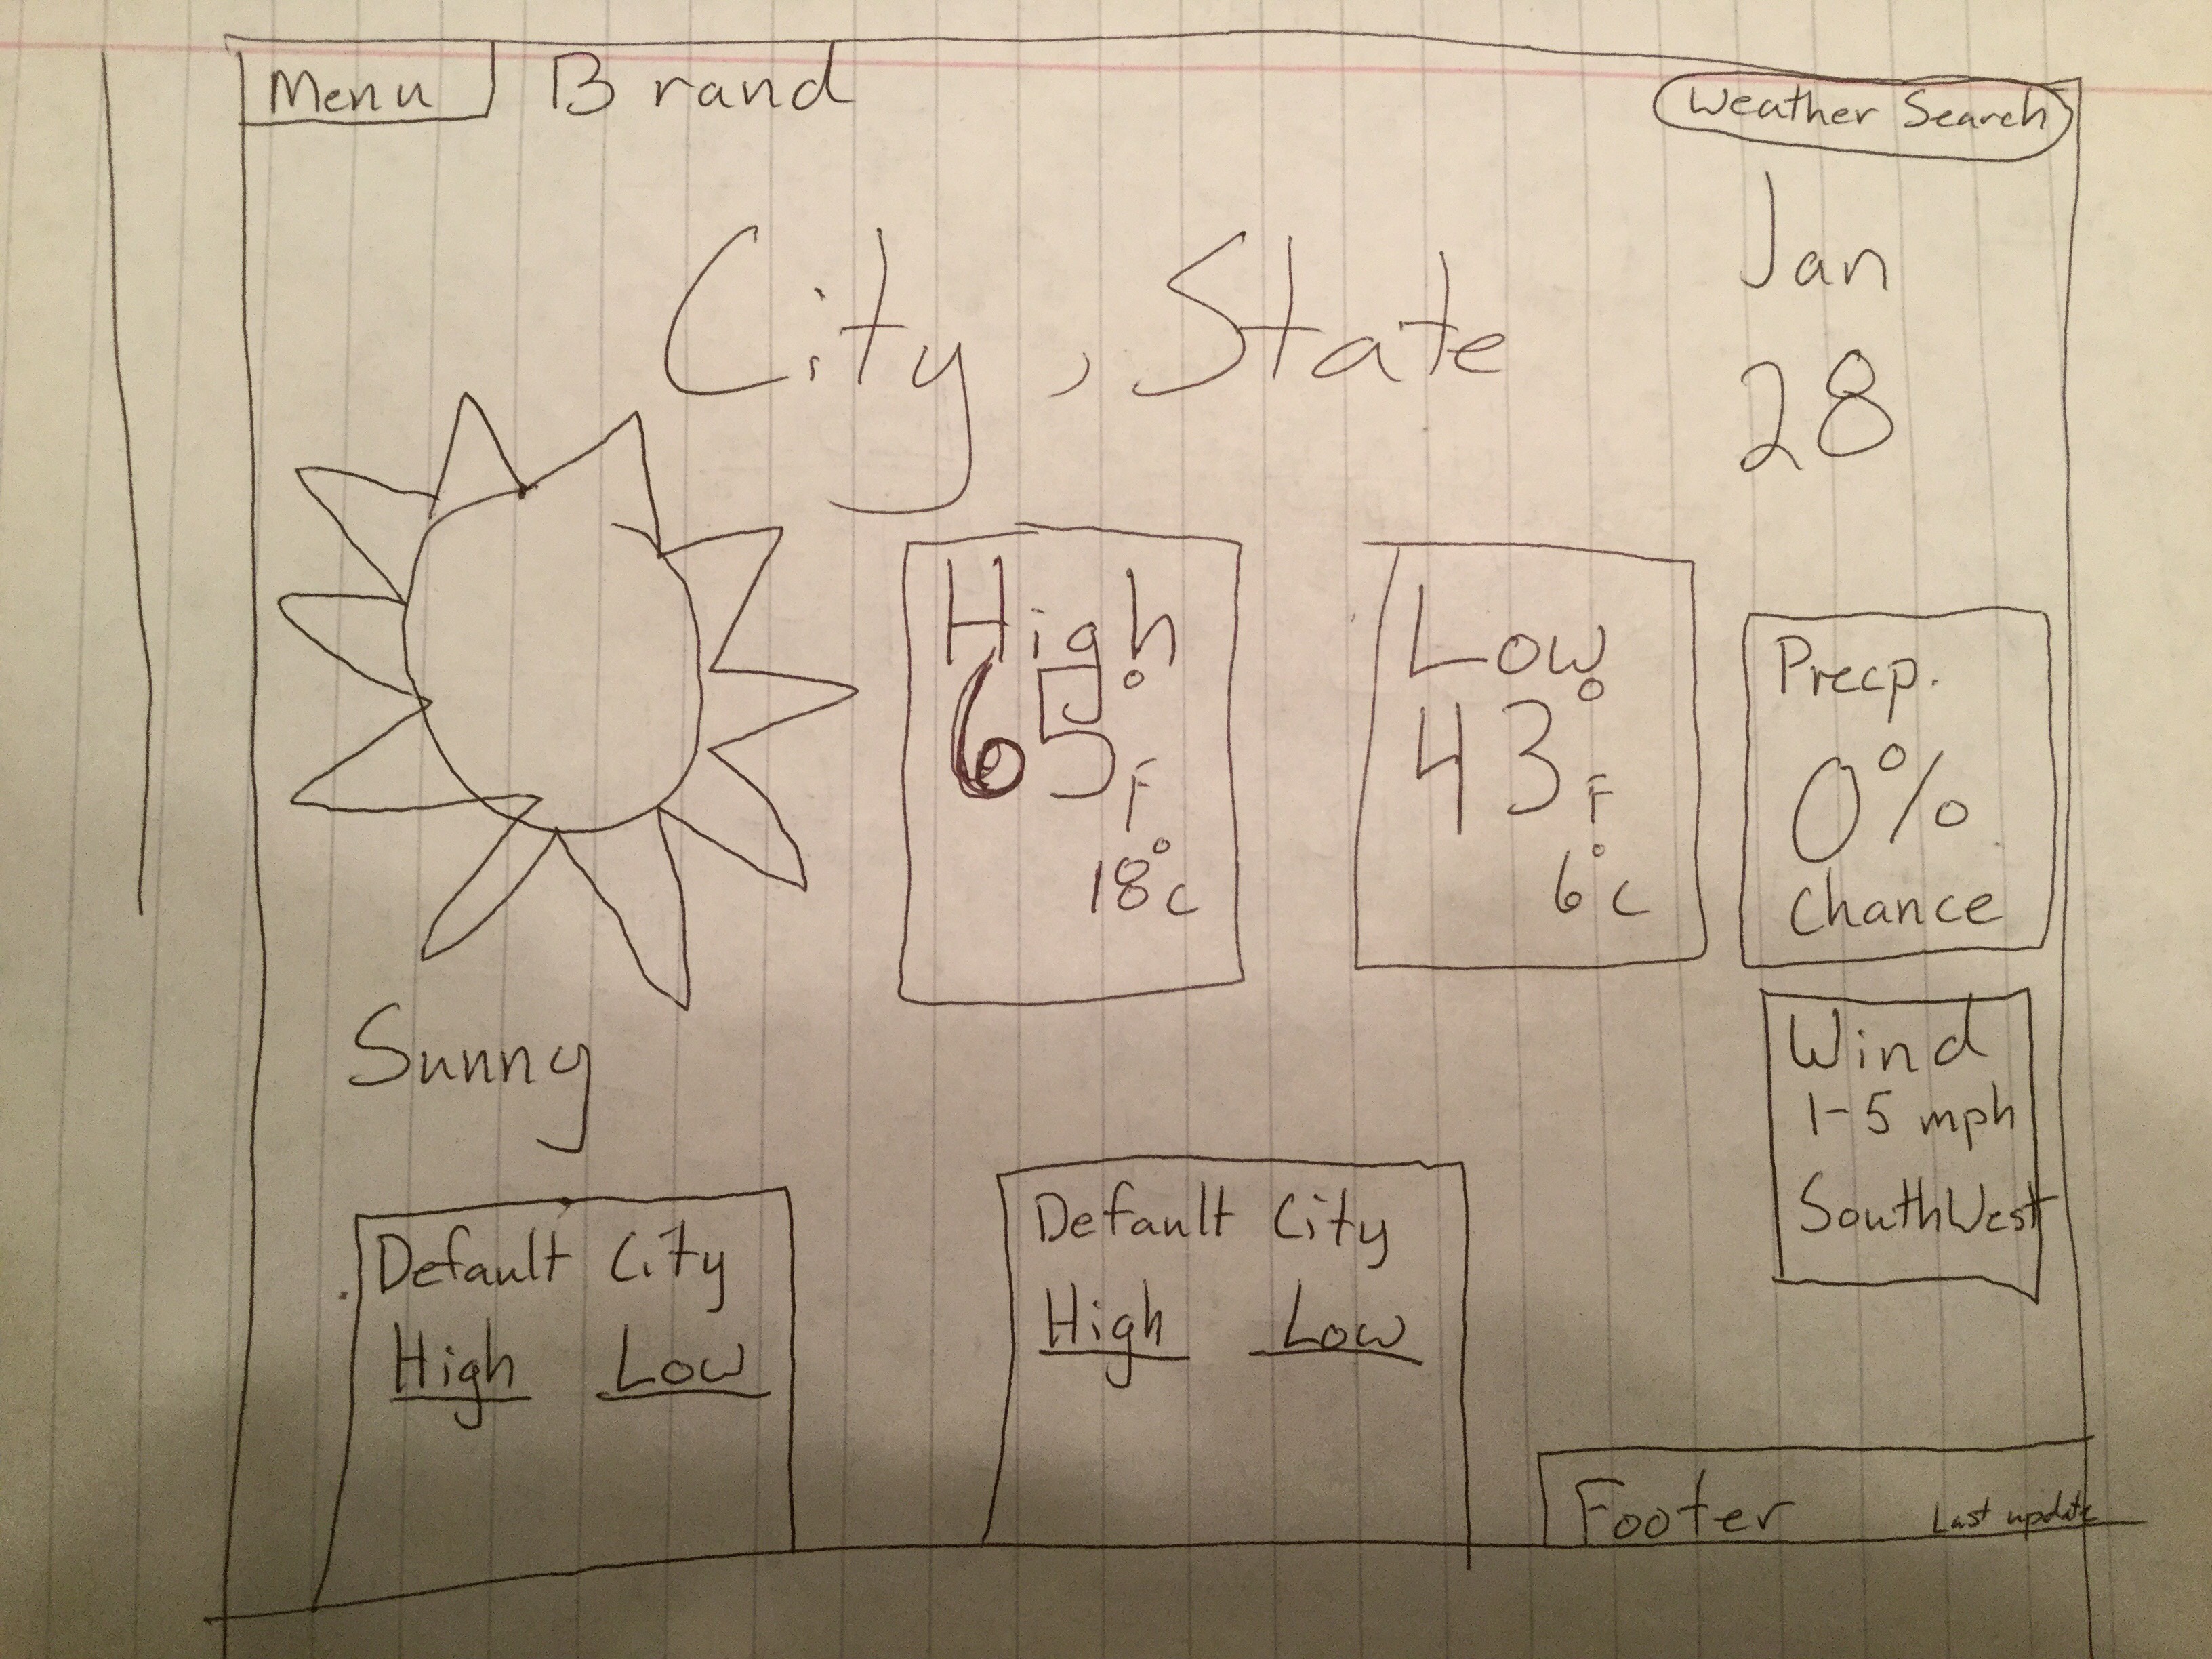 Menu Brand Weather Search
City, State
Jan
28
High
65°F
18°C
Low
43°F
6°C
Precp.
0%
Chance
Sunny
Wind
1-5 mph
SouthWest
Default City
High Low
Default City
High Low
Footer Last update